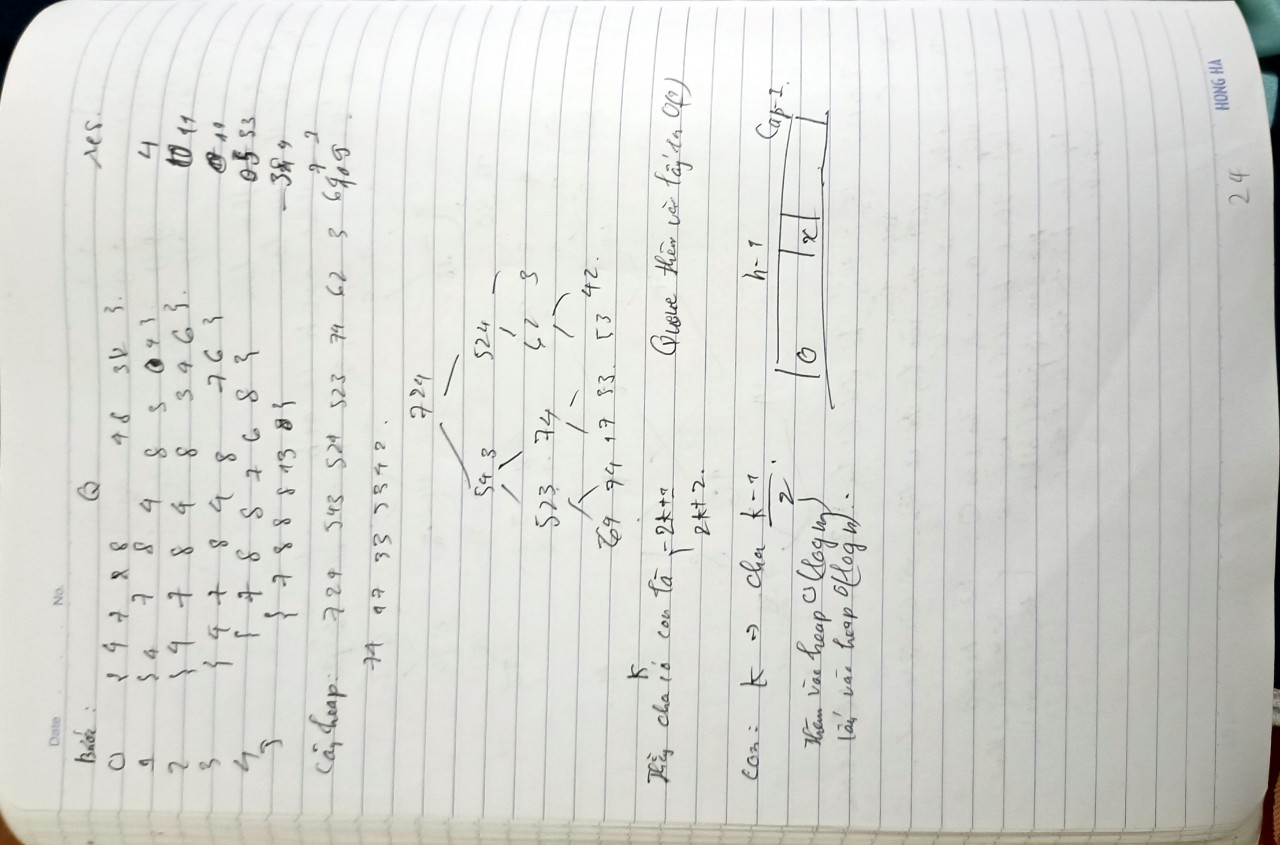 Date No.
Bước : Q res.
0 { 4 7 8 8 4 8 3 }.
1 { 4 7 8 4 8 3 4 } 4
2 { 4 7 8 4 8 3 4 6 }. 11
3 { 4 7 8 4 8 7 6 } 11
4 { 7 8 8 7 6 8 } 53
5 { 7 8 8 8 13 8 }
Cây heap: 724 543 524 523 74 62 3 69
74 17 33 53 42.
724
543 524
523 74 62 3
69 74 17 33. 53 42.
K
Thằng cha có con là 2k+1 Queue thêm và lấy ra O(1)
2k+2.
con: k → cha k-1 / 2. n-1 Cap-1.
0 x
Thêm vào heap O(log n)
lấy vào heap O(log n).
24 HONG HA